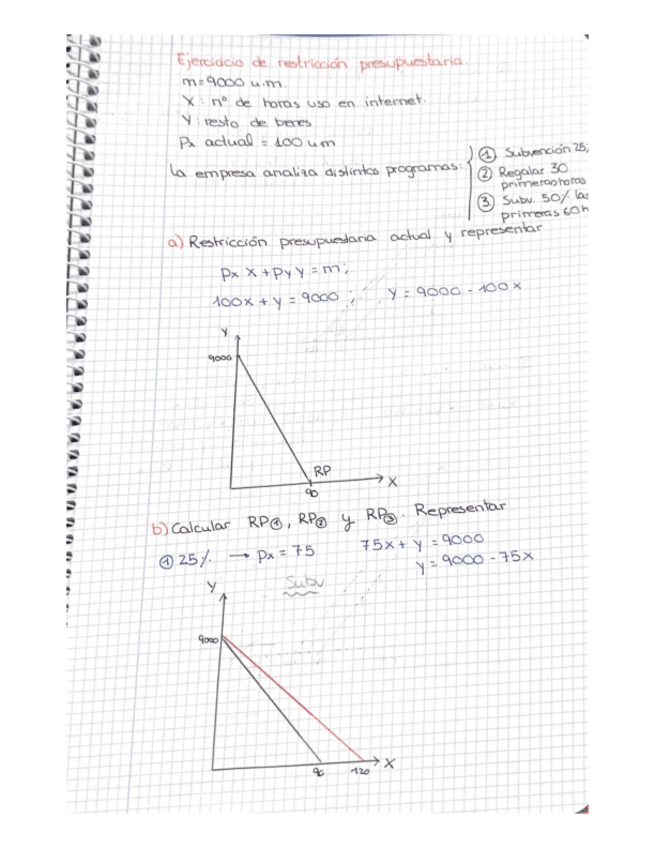 Ejerciacio de restricción presupuestaria.
m=9000 u.m.
X: nº de horas uso en internet.
Y: resto de bienes
Px actual = 100 um
La empresa analiza distintos programas:
① Subvención 25%
② Regalar 30
primeras horas
③ Subv. 50% las
primeras 60h
a) Restricción presupuestaria actual y representar
Px X + Py Y = m;
100x + y = 9000 ; y = 9000 - 100x
Y
9000
RP
X
90
b) Calcular RP①, RP② y RP③. Representar
① 25% → Px = 75 75x + y = 9000
y = 9000 - 75x
Subv
Y
9000
X
90 120